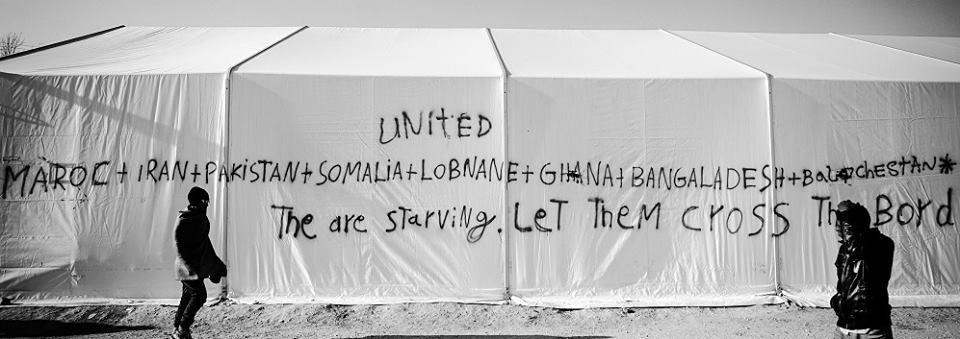 UNitED
MAROC + iRAN + PAKiSTAN + SOMALiA + LOBNANE + GHANA + BANGALADESH + BaLOCHESTAN *
The are starving. LeT Them cross Th Bord